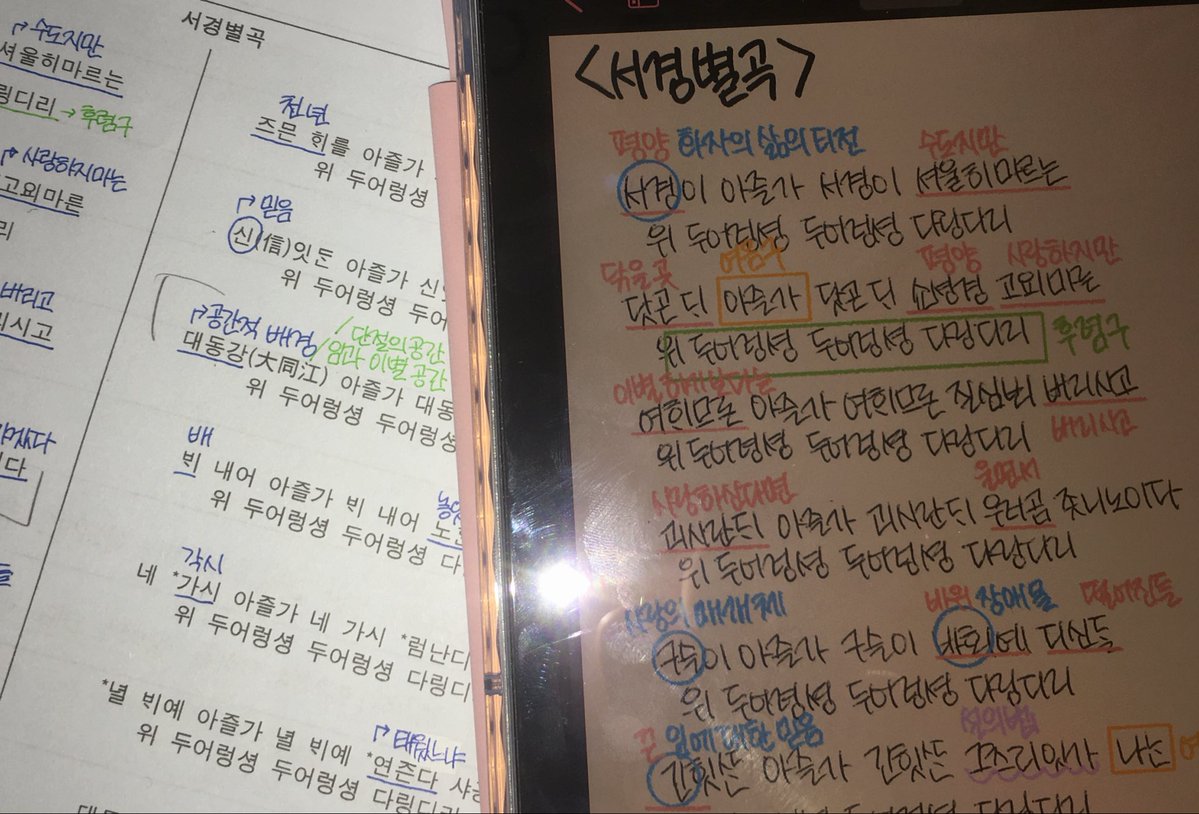 서경별곡
수도지만
셔울히마르는
링디리 → 후렴구
사랑하지마는
고외마른
리
버리고
리시고
천년
즈믄 히를 아즐가
위 두어렁셩
믿음
신(信)잇돈 아즐가 신
위 두어렁셩 두어
공간적 배경 / 단절의 공간
대동강(大同江) 아즐가 대동
/ 임과 이별 공간
위 두어렁셩 두어렁셩
배
빈 내어 아즐가 빈 내어
위 두어렁셩 두어렁셩 다
각시
네 *가시 아즐가 네 가시 *럼난디
위 두어렁셩 두어렁셩 다링디
태웠느냐
*녈 빈예 아즐가 녈 빈예 *연즌다
위 두어렁셩 두어렁셩 다링디리
<서경별곡>
평양 화자의 삶의 터전 수도지만
서경이 아즐가 서경이 셔울히마르는
위 두어렁셩 두어렁셩 다링디리
닦은 곳 여음구 평양 사랑하지만
닷곤 디 아즐가 닷곤 디 쇼셩경 고외마른
위 두어렁셩 두어렁셩 다링디리 후렴구
이별하기보다는
여희므론 아즐가 여희므론 질삼뵈 버리시고
위 두어렁셩 두어렁셩 다링디리 버리시고
사랑하신다면 울면서
괴시란디 아즐가 괴시란디 우러곰 좃니노이다
위 두어렁셩 두어렁셩 다링디리
사랑의 매개체 바위 장애물 떨어진들
구슬이 아즐가 구슬이 바회예 디신들
위 두어렁셩 두어렁셩 다링디리
끈 임에 대한 믿음 설의법
긴힛든 아즐가 긴힛든 그츠리잇가 나는
두어렁셩 두어렁셩 다링디리